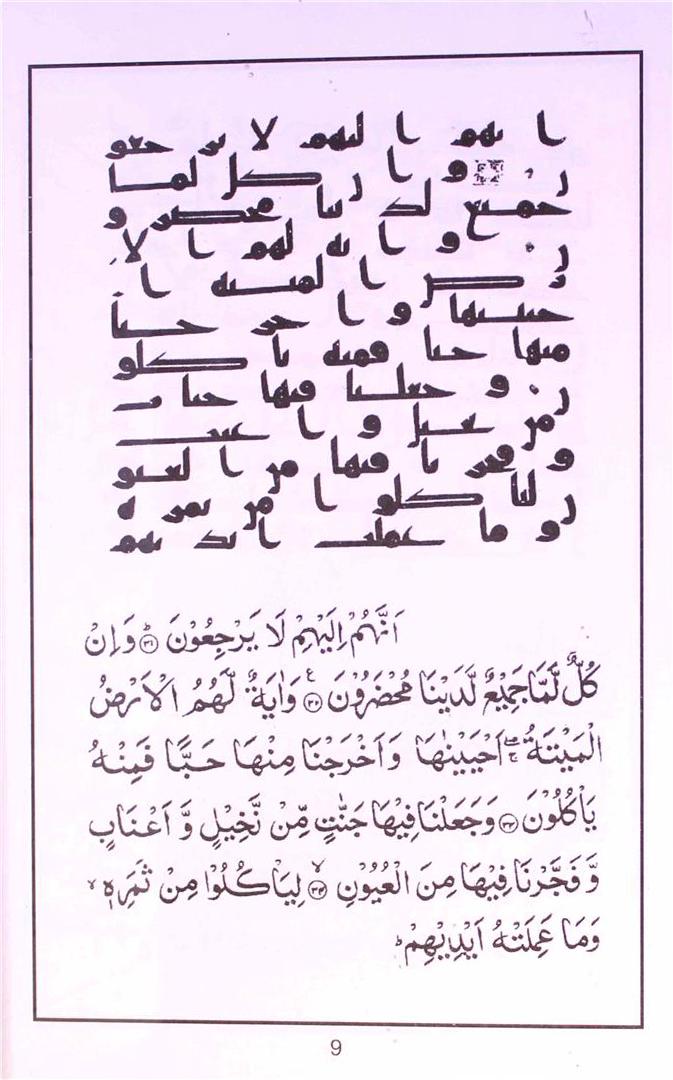 ا نهم ا ليهم لا ير جعو
ن و ا ن كل لما
جميع لد ينا محضر و
ن و ا يه لهم ا لا
ر ض ا لميته ا
حيينها و ا خر جنا
منها حبا فمنه يا كلو
ن و جعلنا فيها جنا ت
من نخيل و ا عنب
و فجر نا فيها من ا لعيو
ن ليا كلو ا من ثمر ه
و ما عملت ا يد يهم
اَنَّهُمْ اِلَيْهِمْ لَا يَرْجِعُوْنَ ۳۱ؕ وَاِنْ
كُلٌّ لَّمَّا جَمِيْعٌ لَّدَيْنَا مُحْضَرُوْنَ ۳۲ع وَاٰيَةٌ لَّهُمُ الْاَرْضُ
الْمَيْتَةُ ۚۖ اَحْيَيْنٰهَا وَاَخْرَجْنَا مِنْهَا حَبًّا فَمِنْهُ
يَاْكُلُوْنَ ۳۳ وَجَعَلْنَا فِيْهَا جَنّٰتٍ مِّنْ نَّخِيْلٍ وَّ اَعْنَابٍ
وَّ فَجَّرْنَا فِيْهَا مِنَ الْعُيُوْنِ ۳۴ۙ لِيَاْكُلُوْا مِنْ ثَمَرِهٖ ۙ
وَمَا عَمِلَتْهُ اَيْدِيْهِمْ ؕ
9